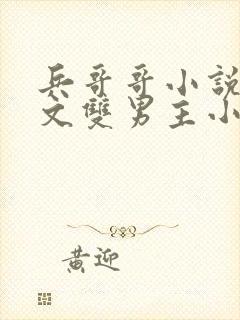 兵哥哥小說
文雙男主小
黃迎